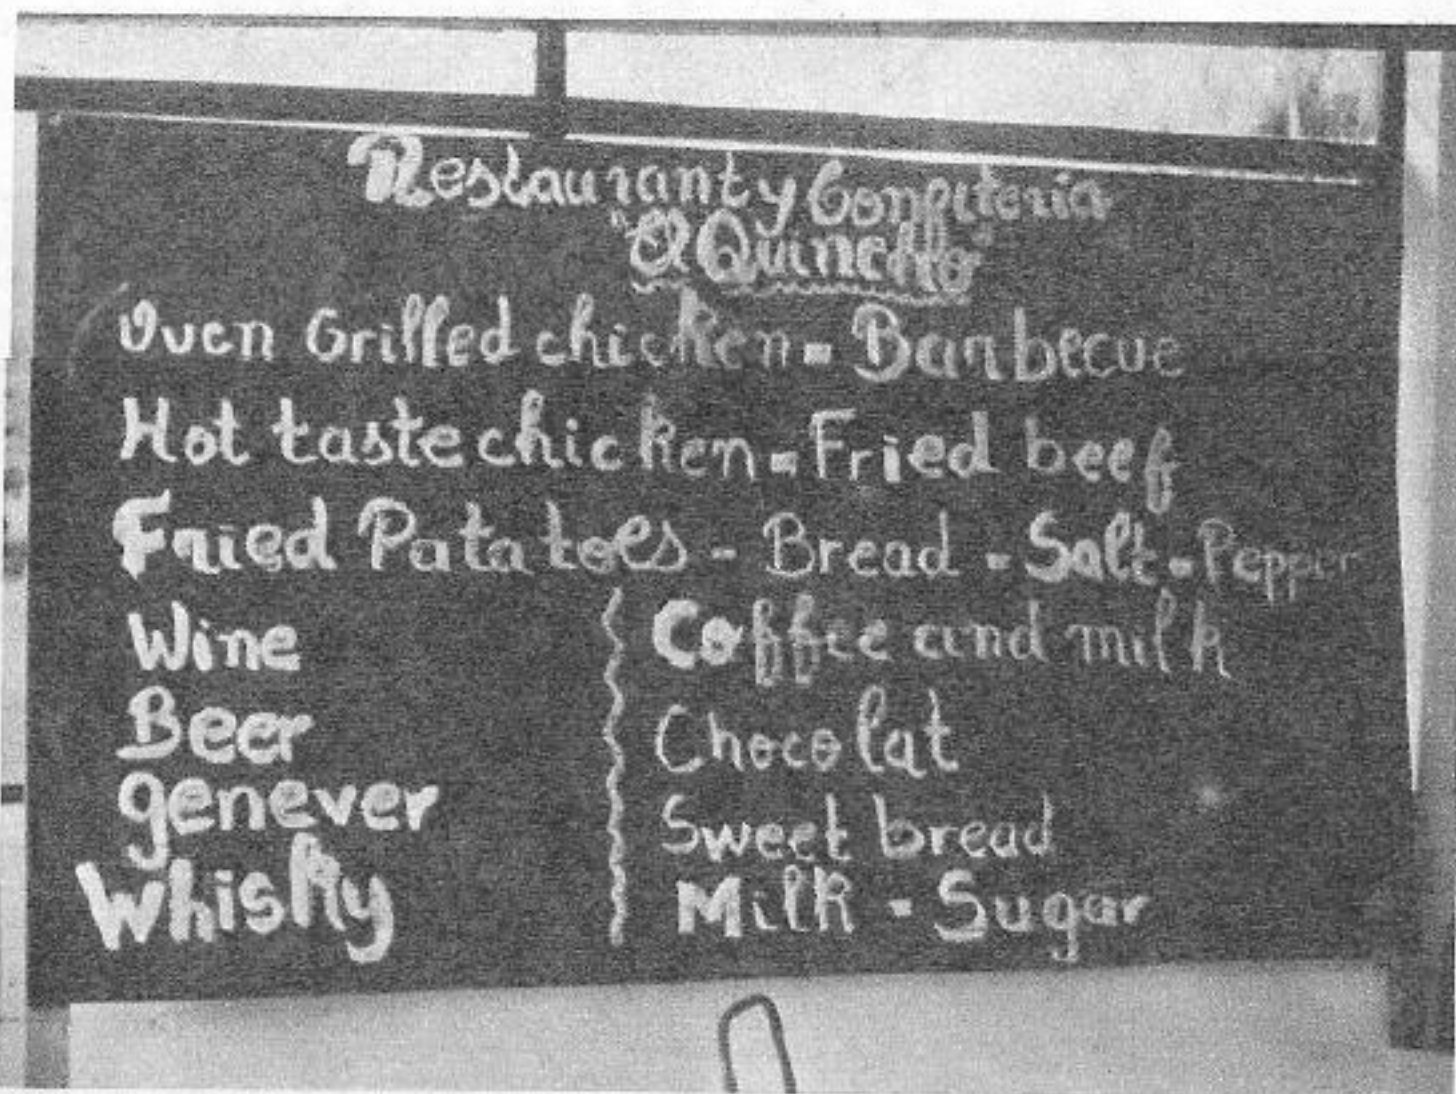 Restaurant y Confiteria
"El Quincho"
Oven Grilled chicken - Barbecue
Hot taste chicken - Fried beef
Fried Patatoes - Bread - Salt - Pepper
Wine
Beer
genever
Whisky
Coffee and milk
Chocolat
Sweet bread
Milk - Sugar